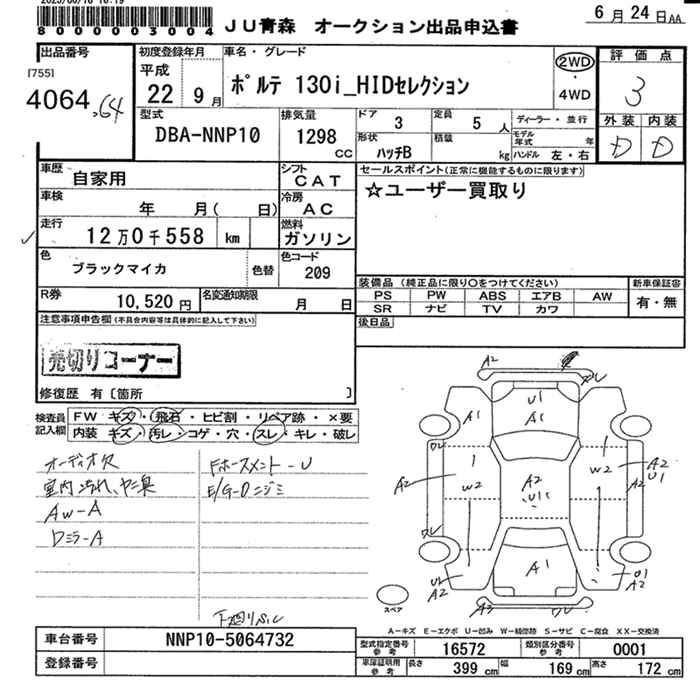 8000000003004
JU青森 オークション出品申込書
6月24日AA
出品番号
[755]
4064
初度登録年月
平成
22年9月
車名・グレード
ポルテ 130i_HIDセレクション
2WD
・
4WD
評価点
3
外装 内装
D D
型式
DBA-NNP10
排気量
1298
CC
ドア
3
定員
5人
ディーラー・並行
形状
ハッチB
積載
kg
モデル年式 年
ハンドル 左・右
車歴
自家用
シフト
CAT
セールスポイント(正常に機能するものに限ります)
☆ユーザー買取り
車検
年 月( 日)
冷房
AC
走行
12万0千558 km
燃料
ガソリン
色
ブラックマイカ
色替
色コード
209
装備品 (純正品に限り○をつけてください)
新車保証書
PS PW ABS エアB AW
有・無
SR ナビ TV カワ
R券
10,520円
名変通知期限
月 日
後日品
注意事項申告欄(不具合内容等は具体的に記入して下さい)
売切りコーナー
修復歴 有〔箇所 〕
検査員記入欄
FW キズ・飛石・ヒビ割・リペア跡・×要
内装 キズ・汚レ・コゲ・穴・スレ・キレ・破レ
オーディオ欠
室内汚れ、ヤニ臭
AW-A
Dミラ-A
Fホースメント-U
E/G-Dニジミ
下廻りサビ
A2
A1
U1
A1
A2
W2
A2
U1
W2
A2
U1
A1
U1
A2
U1
A2
A2
スペア
A-キズ E-エクボ U-凹み W-補修跡 S-サビ C-腐食 XX-交換済
車台番号
NNP10-5064732
登録番号
型式指定番号 参考
16572
類別区分番号 参考
0001
車庫証明用 参考
長さ
399 cm
幅
169 cm
高さ
172 cm